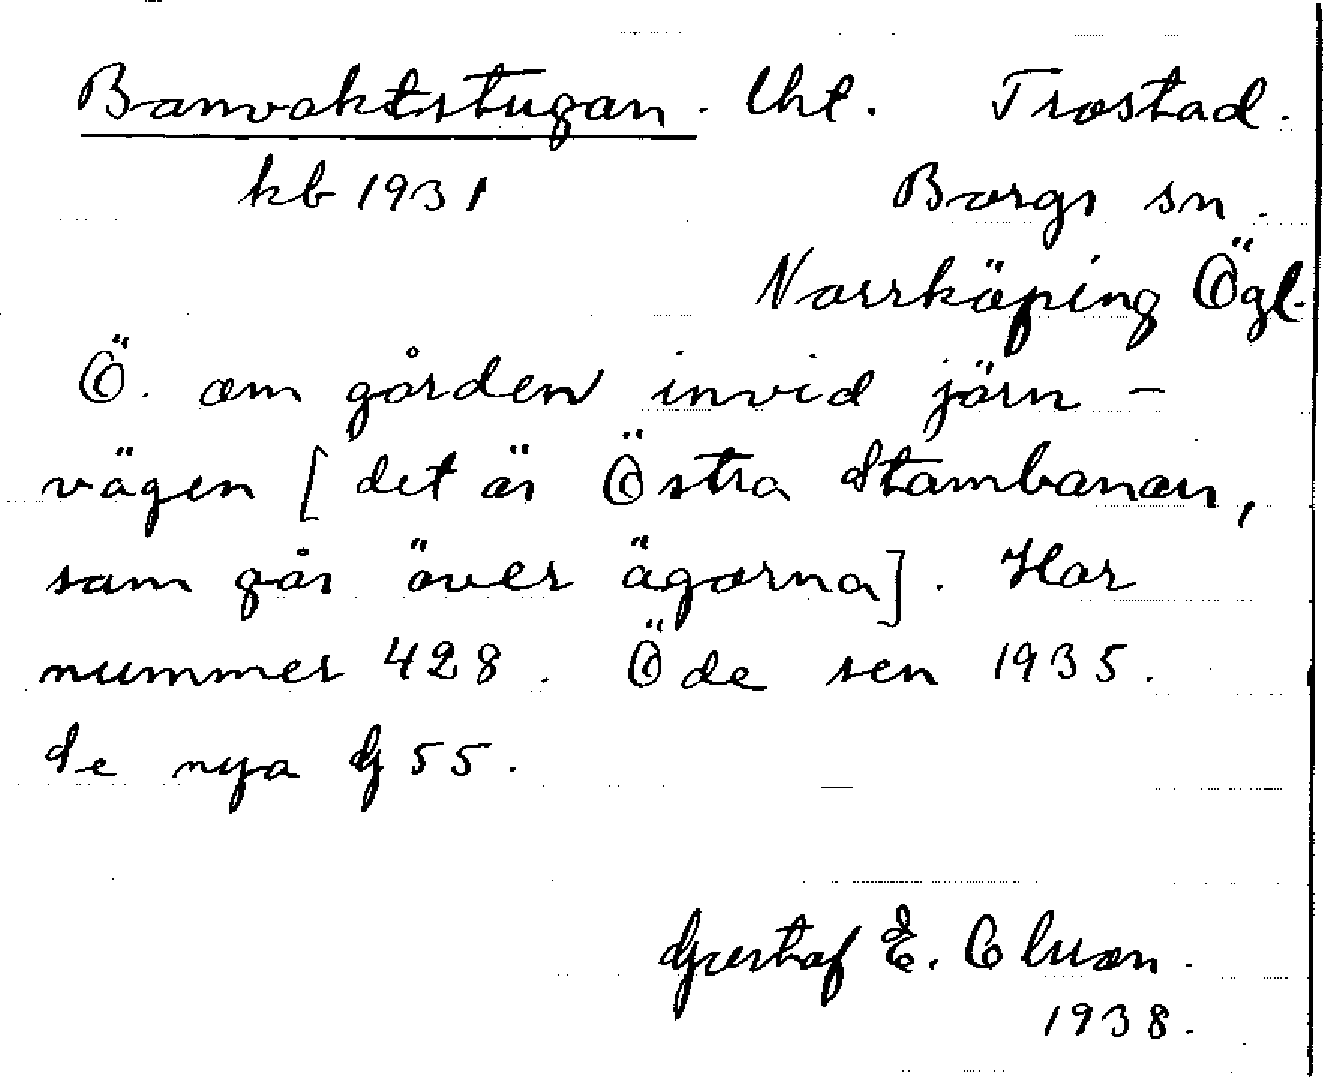 Banvaktstugan. Lht. Trostad.
kb 1931 Borgs sn.
Norrköping Ögl.
Ö. om gården invid järn-
vägen [det är Östra Stambanan,
som går över ägorna]. Har
nummer 428. Öde sen 1935.
Se nya G 55.
Gustaf E. Olson.
1938.